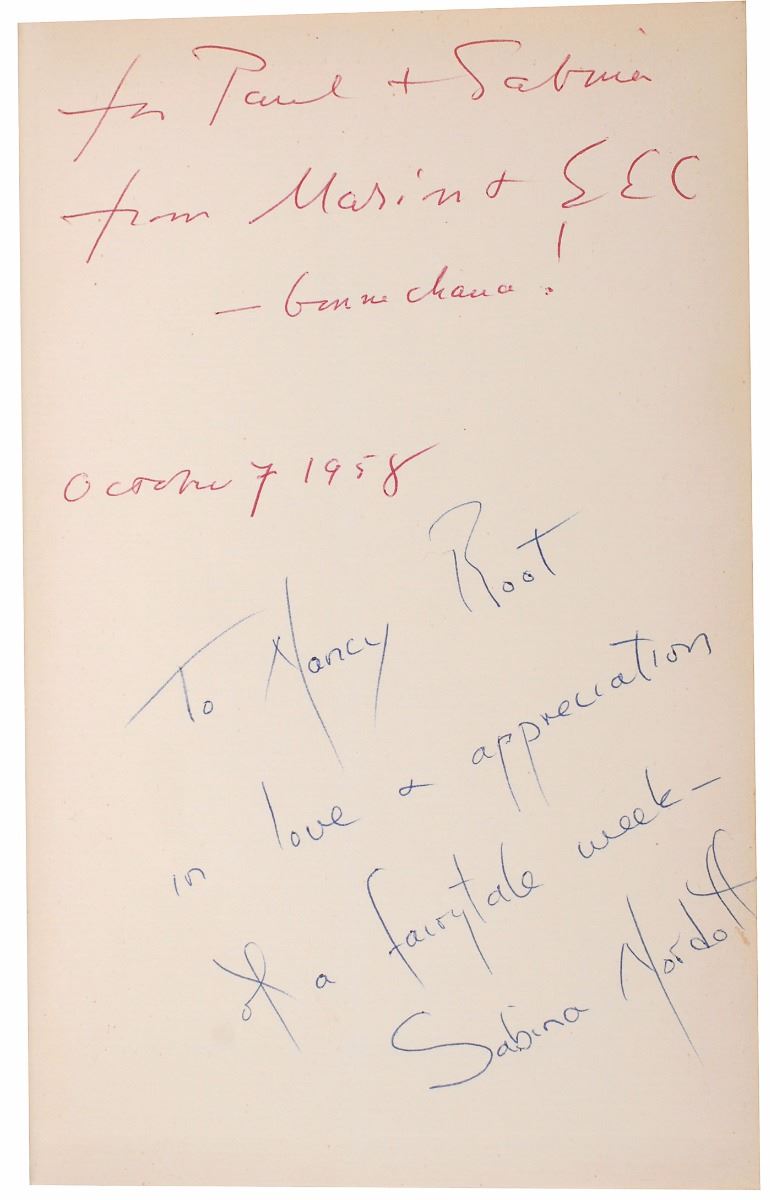 for Paul + Sabina
from Marion + EEC
— bonne chance!
October 7 1958
To Nancy Root
in love & appreciation
of a fairytale week—
Sabina Nordoff